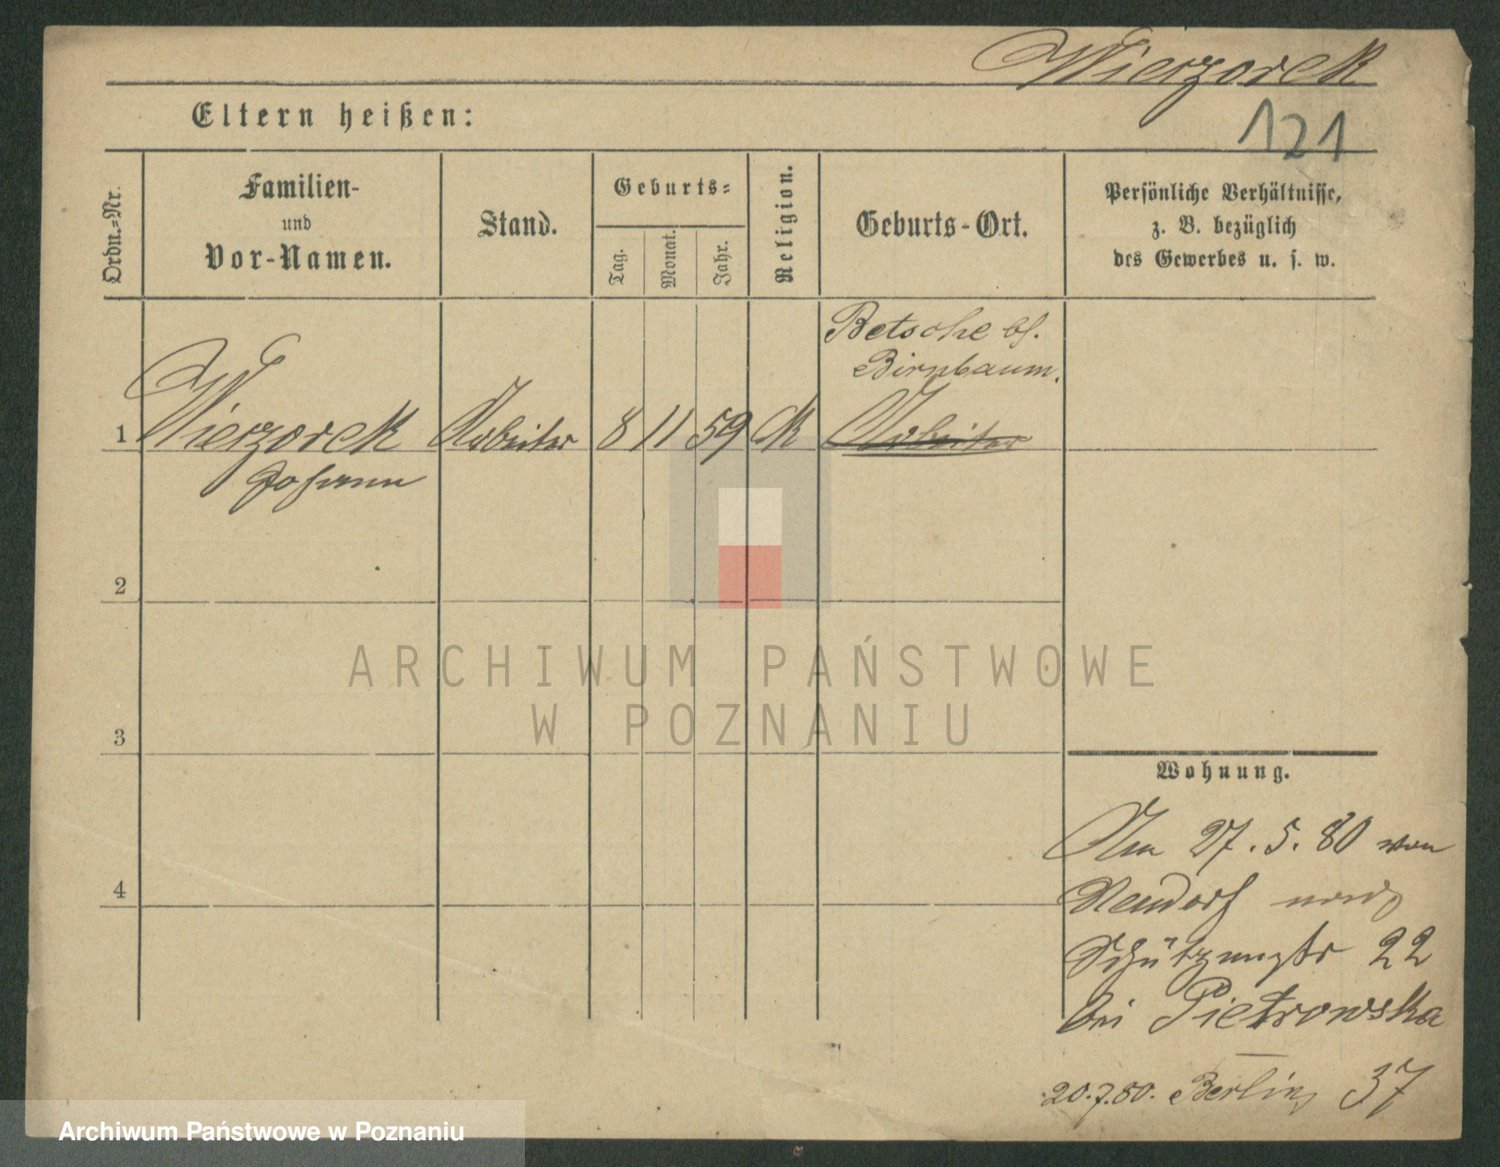 Wierzorek
121
Eltern heißen:
Ordn.-Nr.
Familien-
und
Vor-Namen.
Stand.
Geburts-
Tag.
Monat.
Jahr.
Religion.
Geburts-Ort.
Persönliche Verhältnisse,
z. B. bezüglich
des Gewerbes u. s. w.
Betsche
Birnbaum.
1 Wierzorek Arbeiter 8 11 59 K Arbeiter
Johann
2
3
4
ARCHIWUM PAŃSTWOWE
W POZNANIU
Wohnung.
27.5.80 von
Neudorf nach
Schützenstr 22
bei Pietrowska
20.7.80. Berlin 37
Archiwum Państwowe w Poznaniu